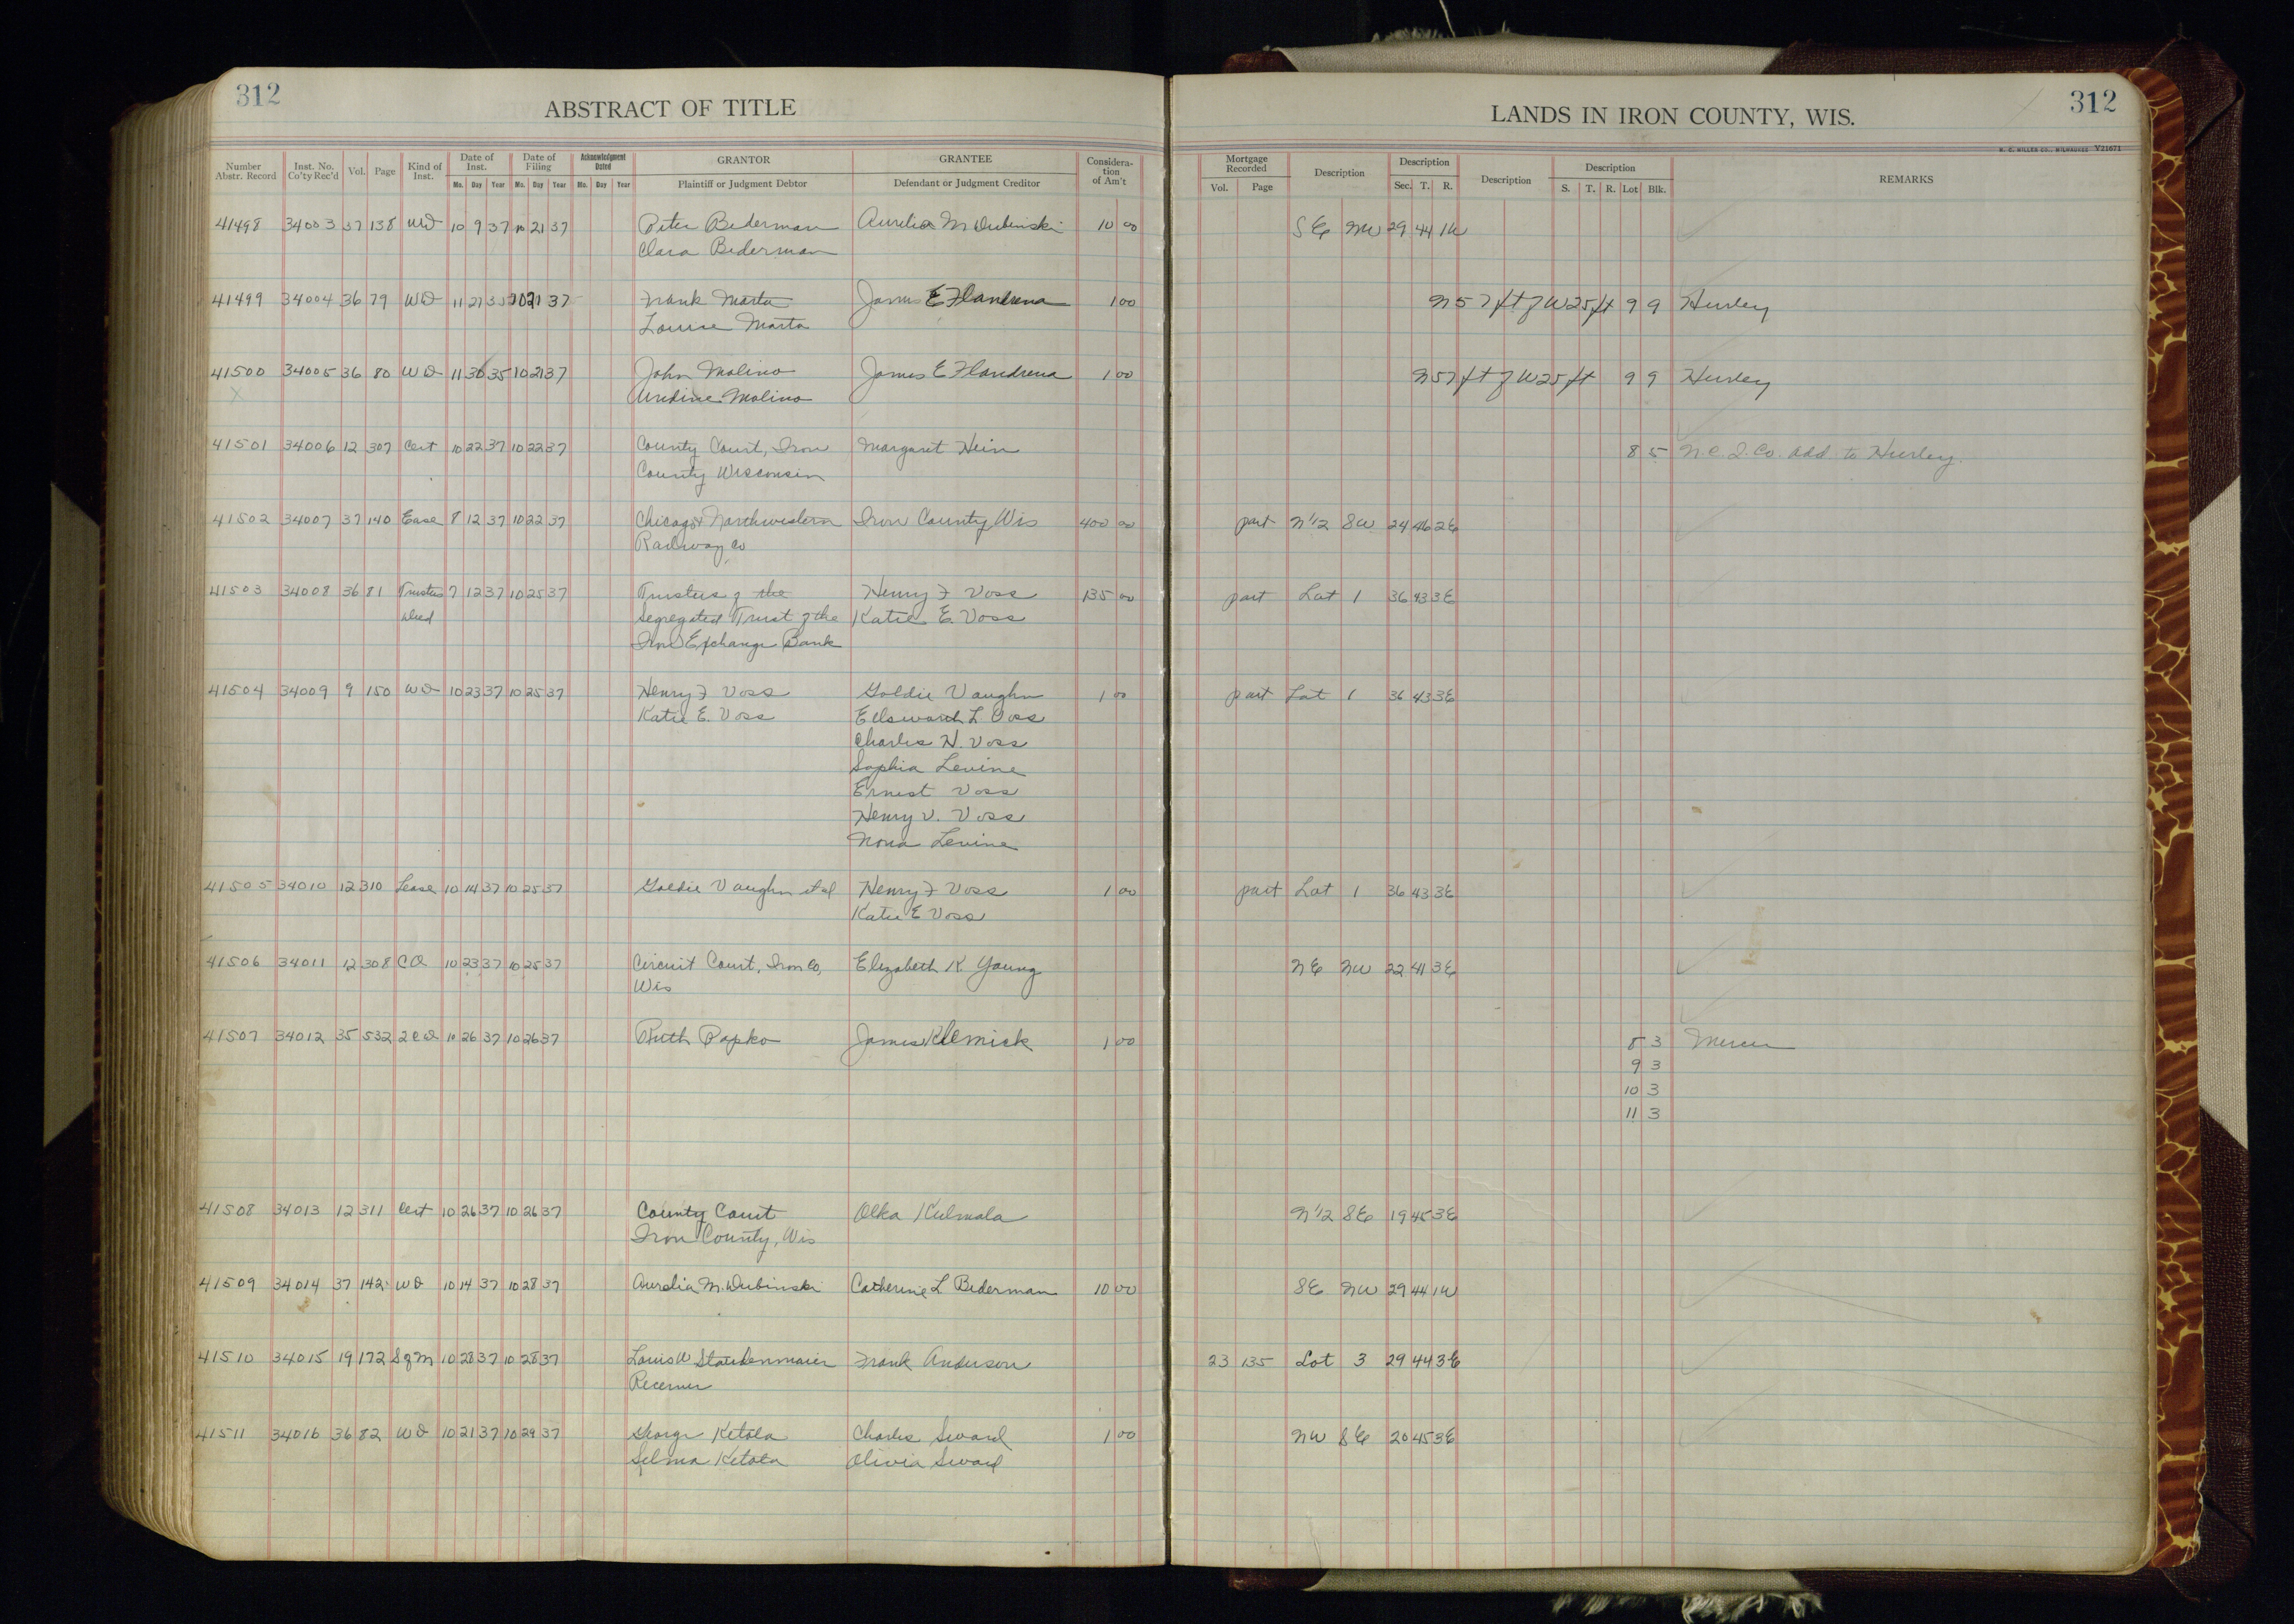 312
ABSTRACT OF TITLE
LANDS IN IRON COUNTY, WIS.
312
H. C. MILLER CO., MILWAUKEE V21671
Number Abstr. Record Inst. No. Co'ty Rec'd Vol. Page Kind of Inst. Date of Inst. Mo. Day Year Date of Filing Mo. Day Year Acknowledgment Dated Mo. Day Year GRANTOR Plaintiff or Judgment Debtor GRANTEE Defendant or Judgment Creditor Considera- tion of Am't Mortgage Recorded Vol. Page Description Description Sec. T. R. Description Description S. T. R. Lot Blk. REMARKS
41498 34003 37 138 WD 10 9 37 10 21 37 Peter Bederman Aurelia M Dubinski 10 00 SE NW 29 44 1W
Clara Bederman
41499 34004 36 79 WD 11 21 35 10 21 37 Frank Marta James E Flandrena 1 00 N 57 ft of W 25 ft 9 9 Hurley
Louise Marta
41500 34005 36 80 WD 11 30 35 10 21 37 John Molino James E Flandrena 1 00 N 57 ft of W 25 ft 9 9 Hurley
X Molino
41501 34006 12 307 Cert 10 22 37 10 22 37 County Court, Iron Margaret Hein 8 5 N. C. I. Co. add to Hurley.
County Wisconsin
41502 34007 37 140 Ease 8 12 37 10 22 37 Chicago & Northwestern Iron County Wis 400 00 part N 1/2 SW 24 46 2E
Railway Co
41503 34008 36 81 Trustees 7 12 37 10 25 37 Trustees of the Henry F Voss 135 00 part Lot 1 36 43 3E
Deed Segregated Trust of the Katie E. Voss
Iron Exchange Bank
41504 34009 9 150 WD 10 23 37 10 25 37 Henry F Voss Goldie Vaughn 1 00 part Lot 1 36 43 3E
Katie E. Voss Ellsworth L. Voss
Charles H. Voss
Sophia Levine
Ernest Voss
Henry V. Voss
Nona Levine
41505 34010 12 310 Lease 10 14 37 10 25 37 Goldie Vaughn et al Henry F Voss 1 00 part Lot 1 36 43 3E
Katie E Voss
41506 34011 12 308 10 23 37 10 25 37 Circuit Court, Iron Co, Elizabeth K. Young NE NW 22 41 3E
Wis
41507 34012 35 532 2CD 10 26 37 10 26 37 Ruth Papko James Klemick 1 00 8 3 Mercer
9 3
10 3
11 3
41508 34013 12 311 Cert 10 26 37 10 26 37 County Court Olka Kulmala N 1/2 SE 19 45 3E
Iron County, Wis
41509 34014 37 142 WD 10 14 37 10 28 37 Aurelia M. Dubinski Catherine L Bederman 10 00 SE NW 29 44 1W
41510 34015 19 172 S of M 10 28 37 10 28 37 Louis W Staudenmaier Frank Anderson 23 135 Lot 3 29 44 3E
Receiver
41511 34016 36 82 WD 10 21 37 10 29 37 George Ketola Charles Sward 1 00 NW SE 20 45 3E
Selma Ketola Olivia Sward